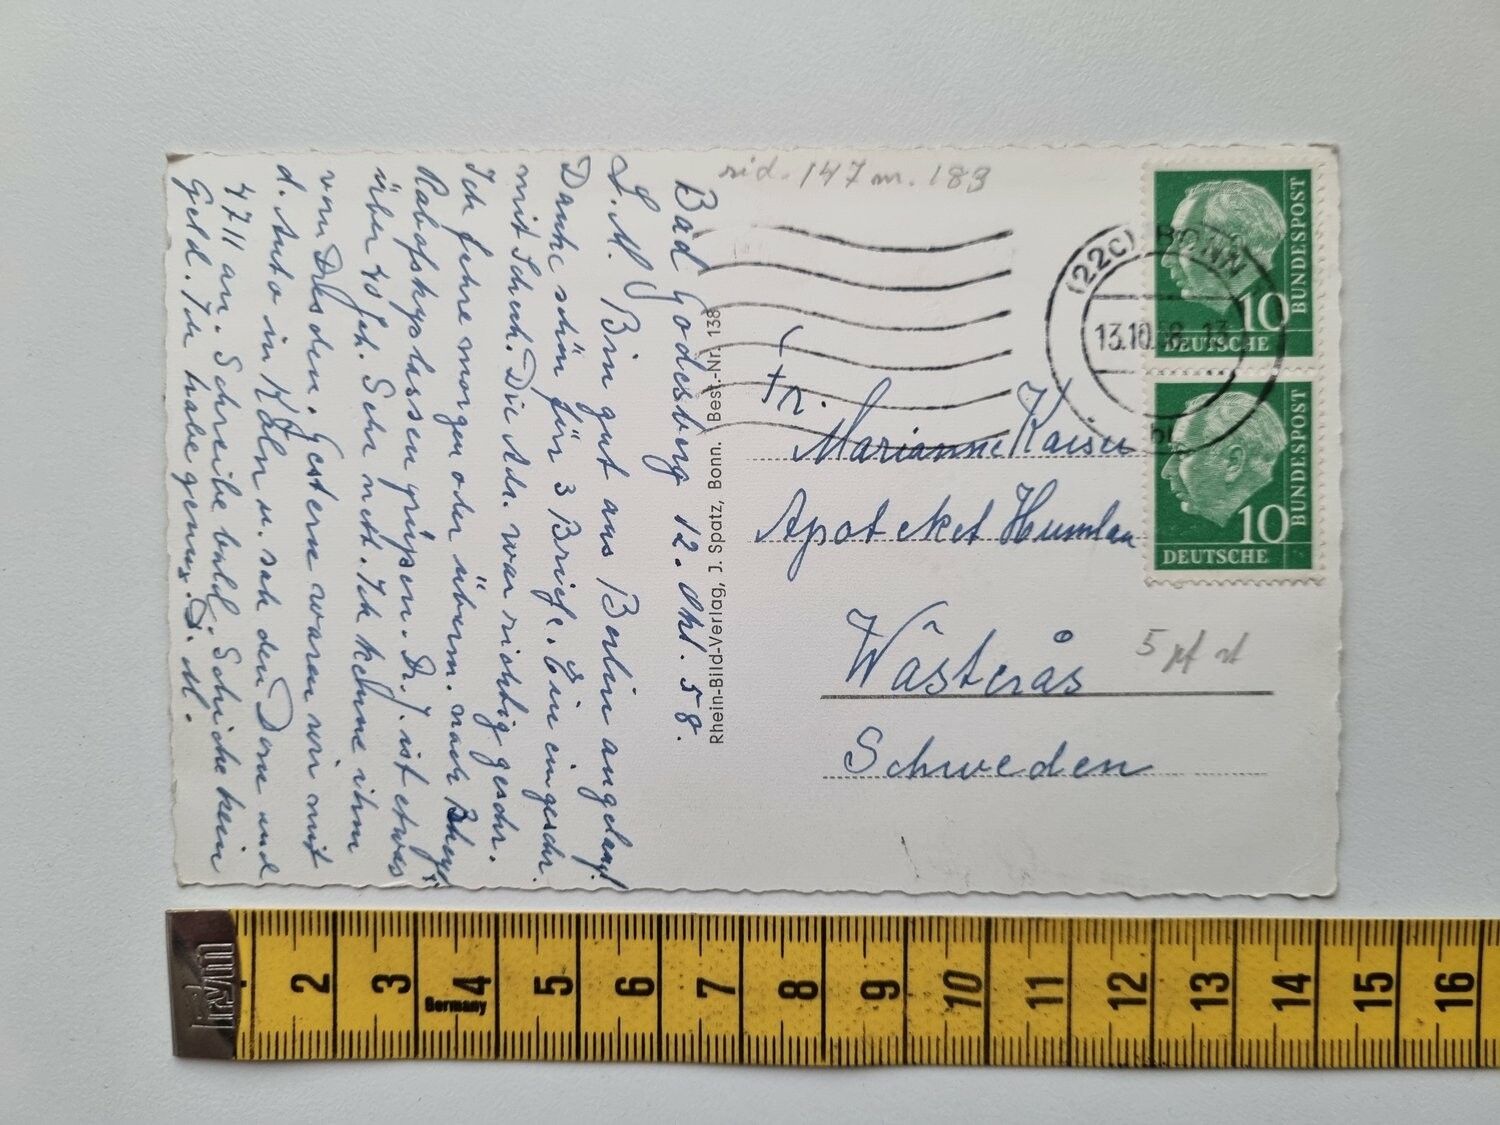 Bad Godesberg 12. Okt. 58.
L. M. Bin gut aus Berlin angelangt.
Danke schön für 3 Briefe. Ein eingeschr.
mit Scheck. Die Adr. war richtig geschr.
Ich fahre morgen oder überm. nach
ist etwas
über 40 Jah. Sehr nett. Ich kenne ihn
von Dresden. Gestern waren wir mit
d. Auto in Köln u. sah den Dom und
4711 an. Schreibe bald. Schicke kein
Geld. Ich habe genug. D. M.
Rhein-Bild-Verlag, J. Spatz, Bonn. Best.-Nr. 138
rid. 147 m. 183
Fr.
Marianne Kaiser
Apoteket Humlan
Wästerås
Schweden
5 pf
(22c) BONN
13.10.58.-13
DEUTSCHE
BUNDESPOST
10
DEUTSCHE
BUNDESPOST
10
prym
Germany
2 3 4 5 6 7 8 9 10 11 12 13 14 15 16